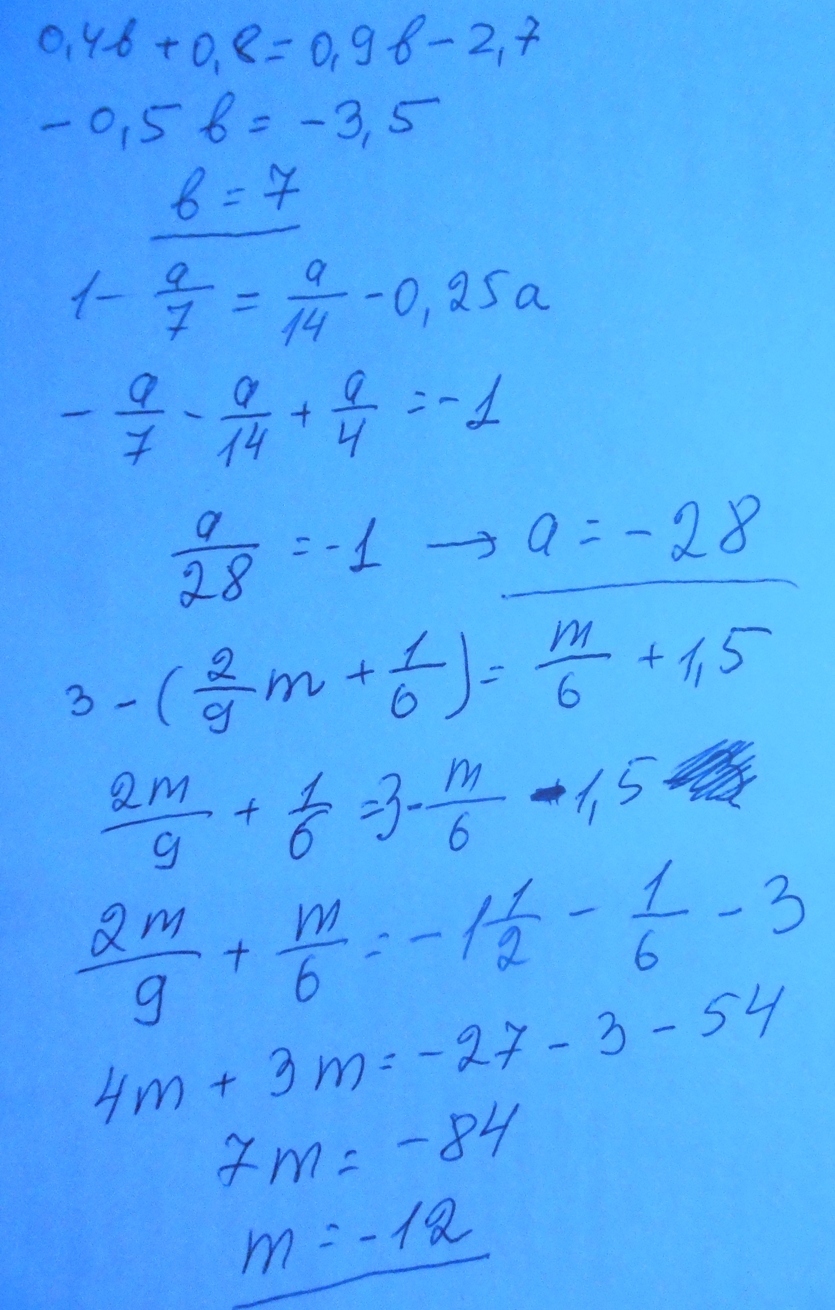 0,4b + 0,8 = 0,9b - 2,7
- 0,5 b = - 3,5
b = 7
1 - a/7 = a/14 - 0,25a
- a/7 - a/14 + a/4 = -1
a/28 = -1 → a = - 28
3 - (2/9 m + 1/6) = m/6 + 1,5
2m/9 + 1/6 = 3 - m/6 - 1,5
2m/9 + m/6 = - 1 1/2 - 1/6 - 3
4m + 3m = - 27 - 3 - 54
7m = - 84
m = - 12